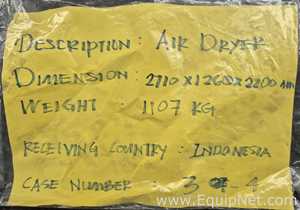 DESCRIPTION: AIR DRYER
DIMENSION: 2710 X 1260 X 2200 MM
WEIGHT : 1107 KG
RECEIVING COUNTRY: INDONESIA
CASE NUMBER 3 OF 4
www.EquipNet.com